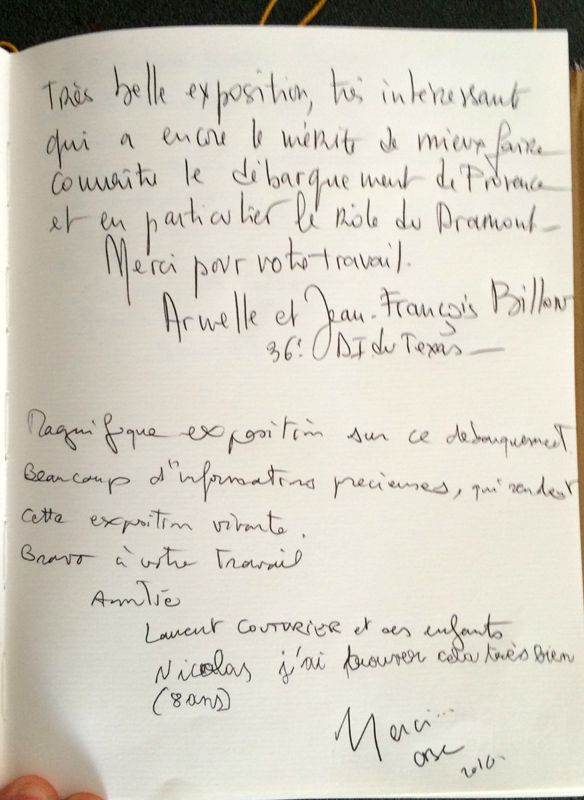 Très belle exposition, très intéressant
qui a encore le mérite de mieux faire
connaître le débarquement de Provence
et en particulier le rôle du Dramont –
Merci pour votre travail.
et Jean-François Billon
36e DI du Texas –
Magnifique exposition sur ce debarquement
Beaucoup d'informations precieuses, qui rendent
cette exposition vivante.
Bravo à votre travail
Amitié
Laurent COUTURIER et ses enfants
Nicolas j'ai trouver cela très bien
(8 ans)
Merci...
2016.